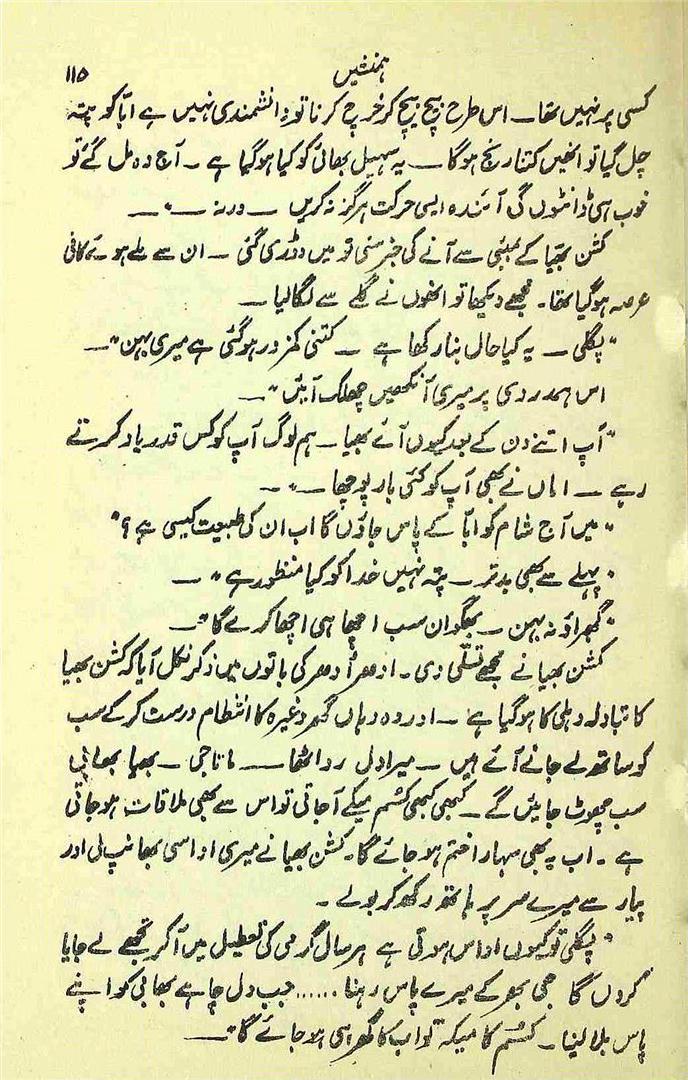 ہمنشیں ۱۱۵
کسی پر نہیں تھا ـــ اس طرح بیچ بیچ کر خرچ کرنا تو دانشمندی نہیں ہے ابّا کو پتہ
چل گیا تو انھیں کتنا رنج ہوگا ـــ یہ سہیل بھائی کو کیا ہوگیا ہے ـ آج وہ مل گئے تو
خوب ہی ڈانٹوں گی آئندہ ایسی حرکت ہرگز نہ کریں ـــ ورنہ ـــ"ـــ
کشن بھیّا کے بمبئی سے آنے کی خبر سنی تو میں دوڑی گئی ـ ان سے ملے ہوئے کافی
عرصہ ہوگیا تھا۔ مجھے دیکھا تو انھوں نے گلے سے لگالیا ـــ
"پگلی ـــ یہ کیا حال بنا رکھا ہے ـــ کتنی کمزور ہوگئی ہے میری بہن"ـــ
اس ہمدردی پر میری آنکھیں چھلک آئیں"ـــ
"آپ اتنے دن کے بعد کیوں آئے بھیا ـ ہم لوگ آپ کو کس قدر یاد کرتے
رہے ـــ اماں نے بھی آپ کو کئی بار پوچھا ـــ"ـــ
"میں آج شام کو ابّا کے پاس جاؤں گا اب ان کی طبیعت کیسی ہے؟"
"پہلے سے بھی بدتر ـــ پتہ نہیں خدا کو کیا منظور ہے"ـــ
"گھبراؤ نہ بہن ـــ بھگوان سب اچھا ہی اچھا کرے گا"ـــ
کشن بھیا نے مجھے تسلّی دی ۔ ادھر اُدھر کی باتوں میں ذکر نکل آیا کہ کشن بھیا
کا تبادلہ دہلی کا ہوگیا ہے ـــ اور وہ وہاں گھر وغیرہ کا انتظام درست کر کے سب
کو ساتھ لے جانے آئے ہیں ـــ میرا دل رو اٹھا ـــ ماتاجی ـ بھیا بھابی
سب چھوٹ جائیں گے ـ کبھی کبھی کسُم میکے آجاتی تو اس سے بھی ملاقات ہوجاتی
ہے ۔ اب یہ بھی سہارا ختم ہوجائے گا۔ کشن بھیا نے میری اداسی بھانپ لی اور
پیار سے میرے سر پر ہاتھ رکھ کر بولے ۔
"پگلی تو کیوں اداس ہوتی ہے ہر سال گرمی کی تعطیل میں آکر تجھے لے جایا
کروں گا جی بھر کے میرے پاس رہنا ...... جب دل چاہے بھابی کو اپنے
پاس بلا لینا ـ کسُم کا میکہ تو اب کا گھر ہی ہوجائے گا"ـــ